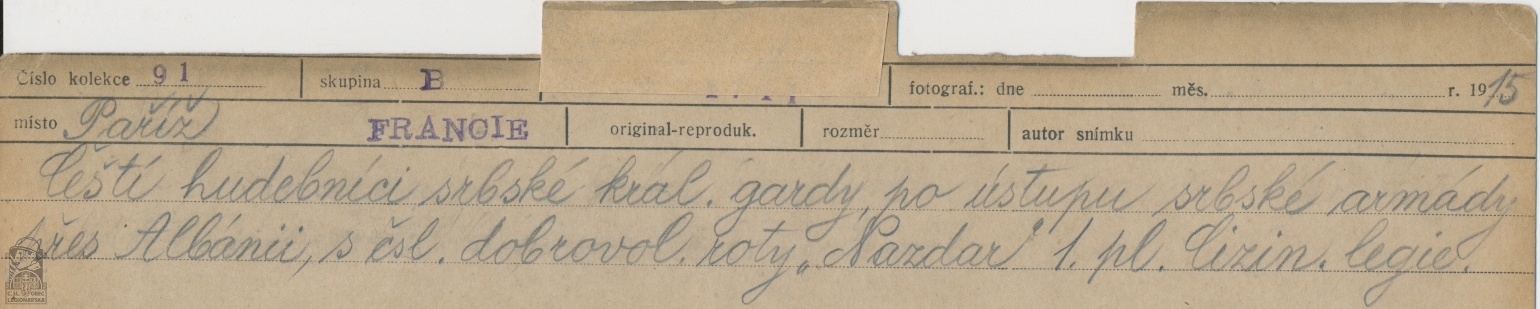 Číslo kolekce 91 skupina B fotograf.: dne měs. r. 1915
místo Paříž FRANCIE original-reproduk. rozměr autor snímku
Čeští hudebníci srbské král. gardy, po ústupu srbské armády
přes Albánii, s čsl. dobrovol. roty „Nazdar" 1. pl. Cizin. legie.